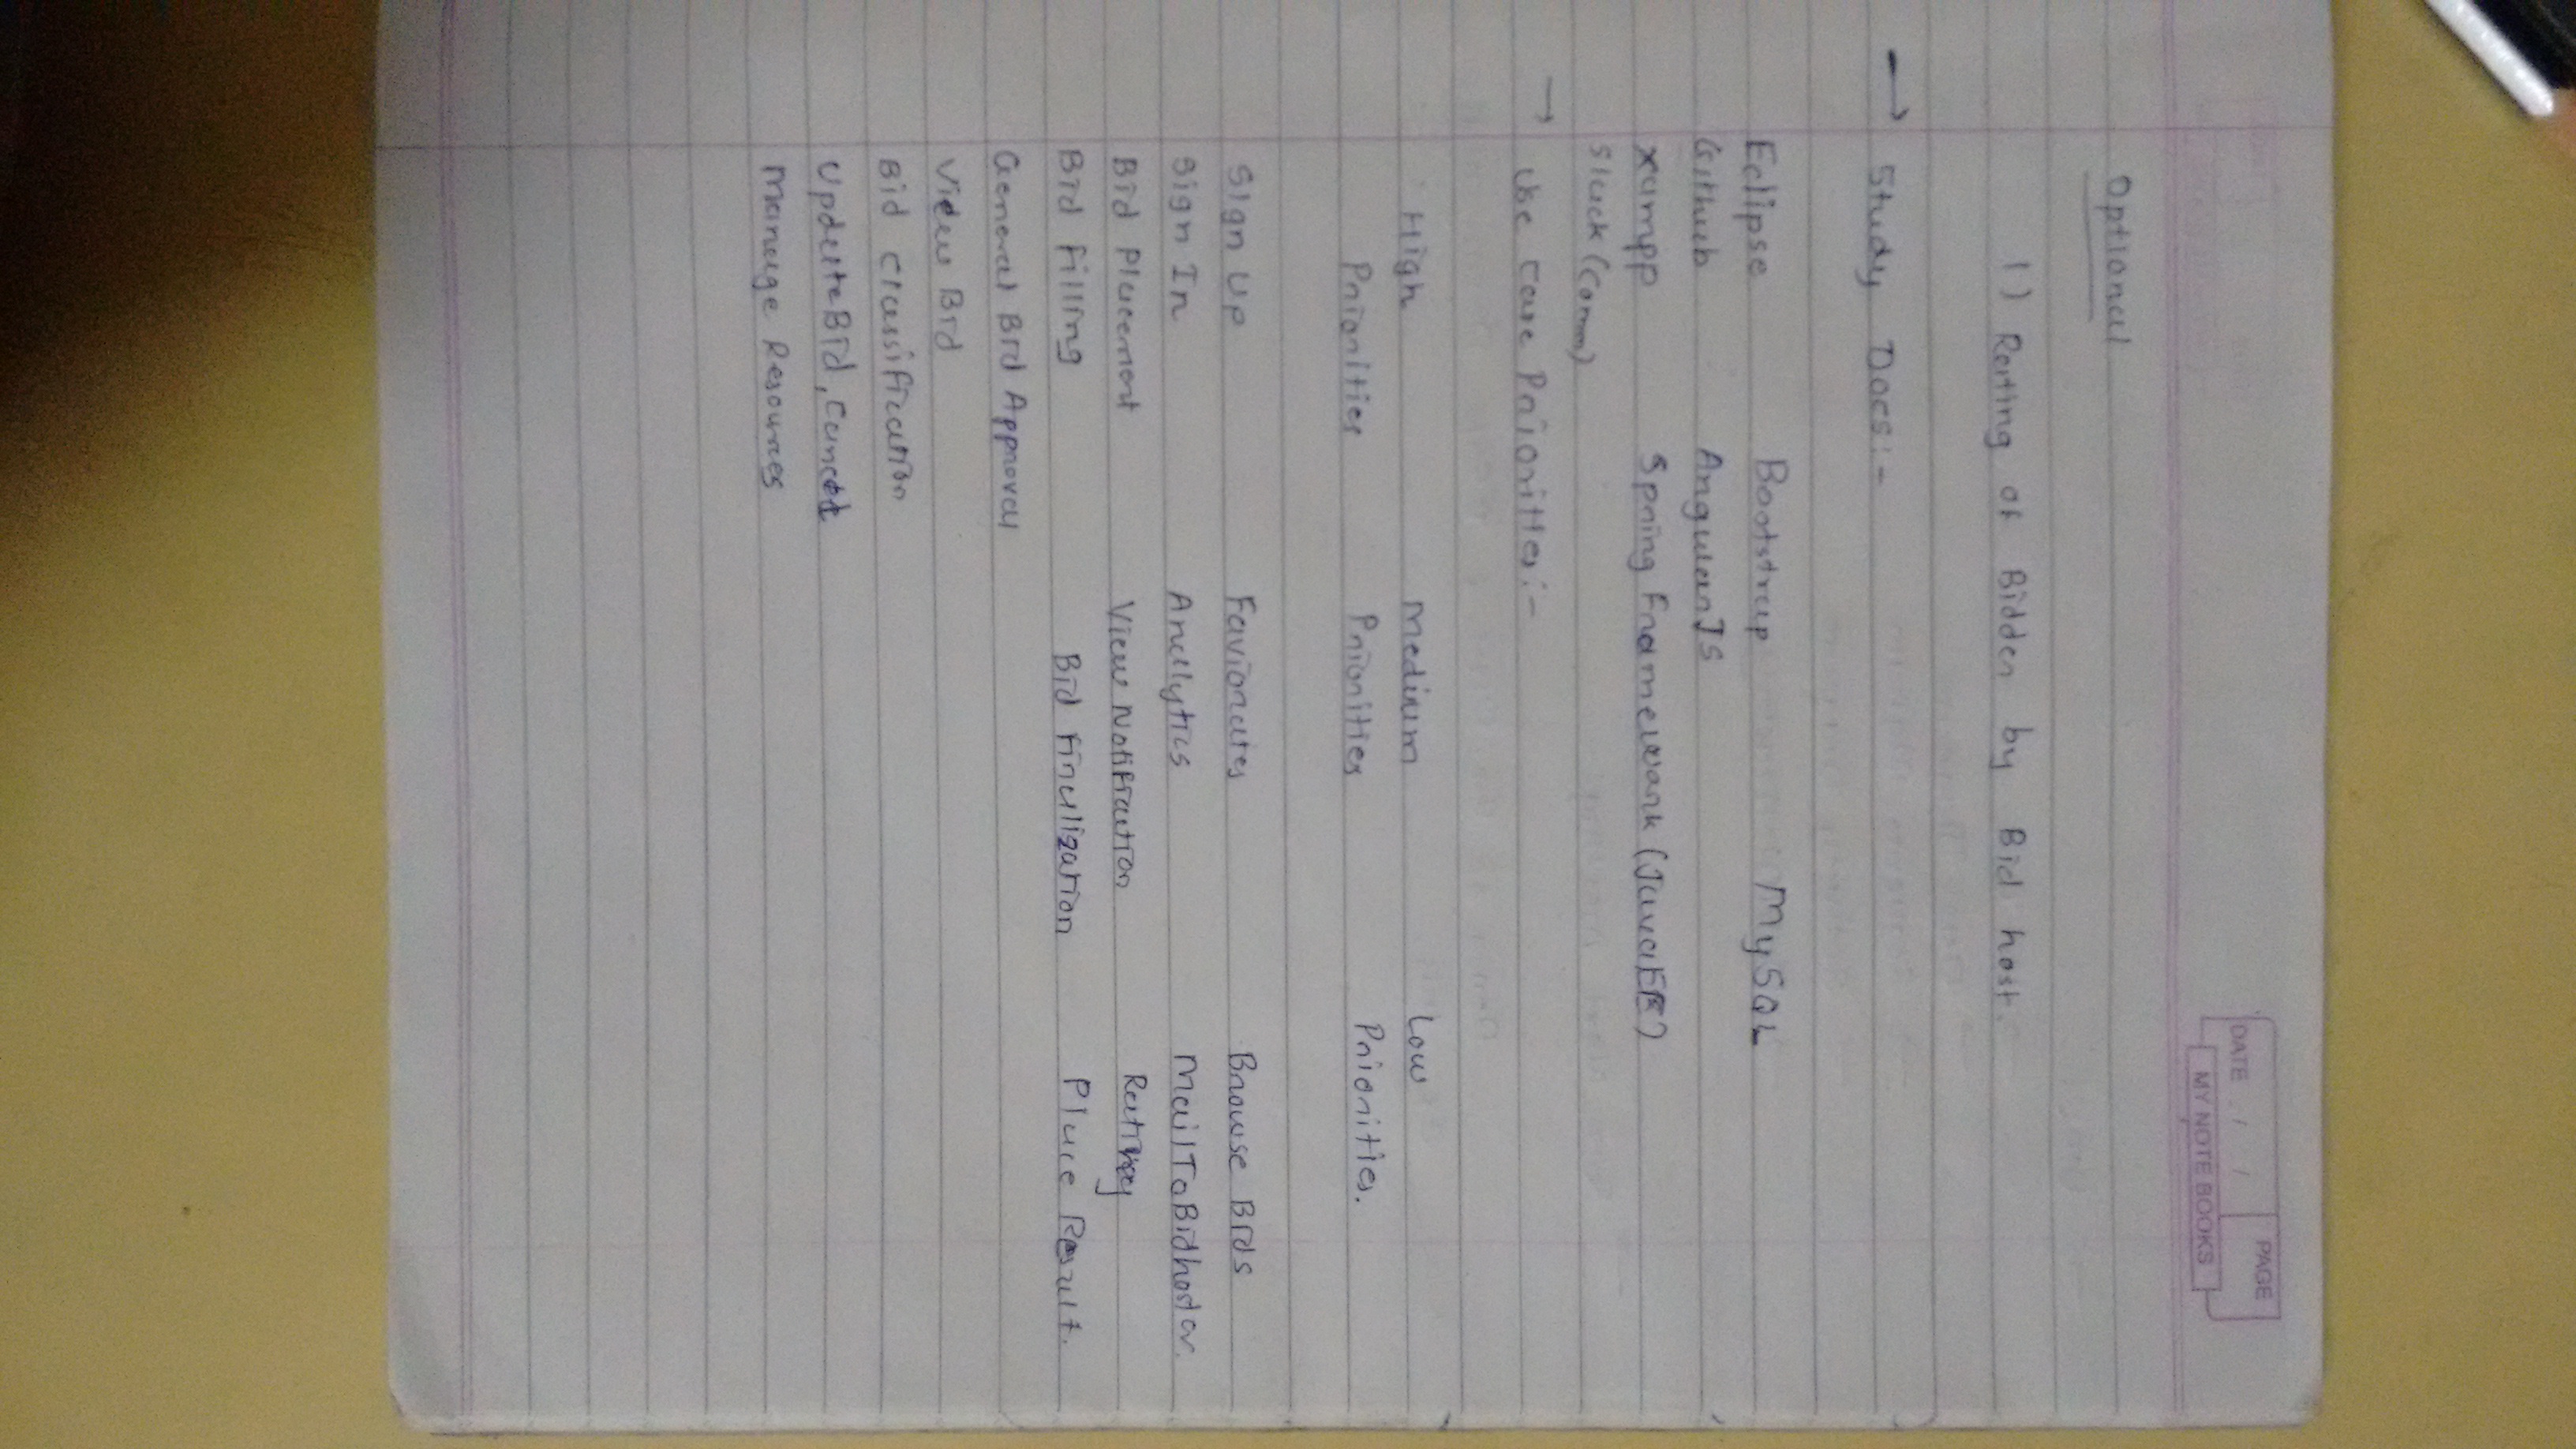 DATE / / PAGE
MY NOTE BOOKS
Optional
1) Rating of Bidder by Bid host.
→ Study Docs:-
Eclipse Bootstrap MySQL
Github AngularJS
xampp Spring Framework (JavaEE)
Slack (Comm)
→ Use Case Priorities:-
High Medium Low
Priorities Priorities Priorities.
Sign Up Faviorates Browse Bids
Sign In Anallytics MailToBidhostor.
Bid Placement View Notification Rating
Bid Filling Bid Finalization Place Result.
General Bid Approval
View Bid
Bid Classification
Update Bid, Cancel
Manage Resources